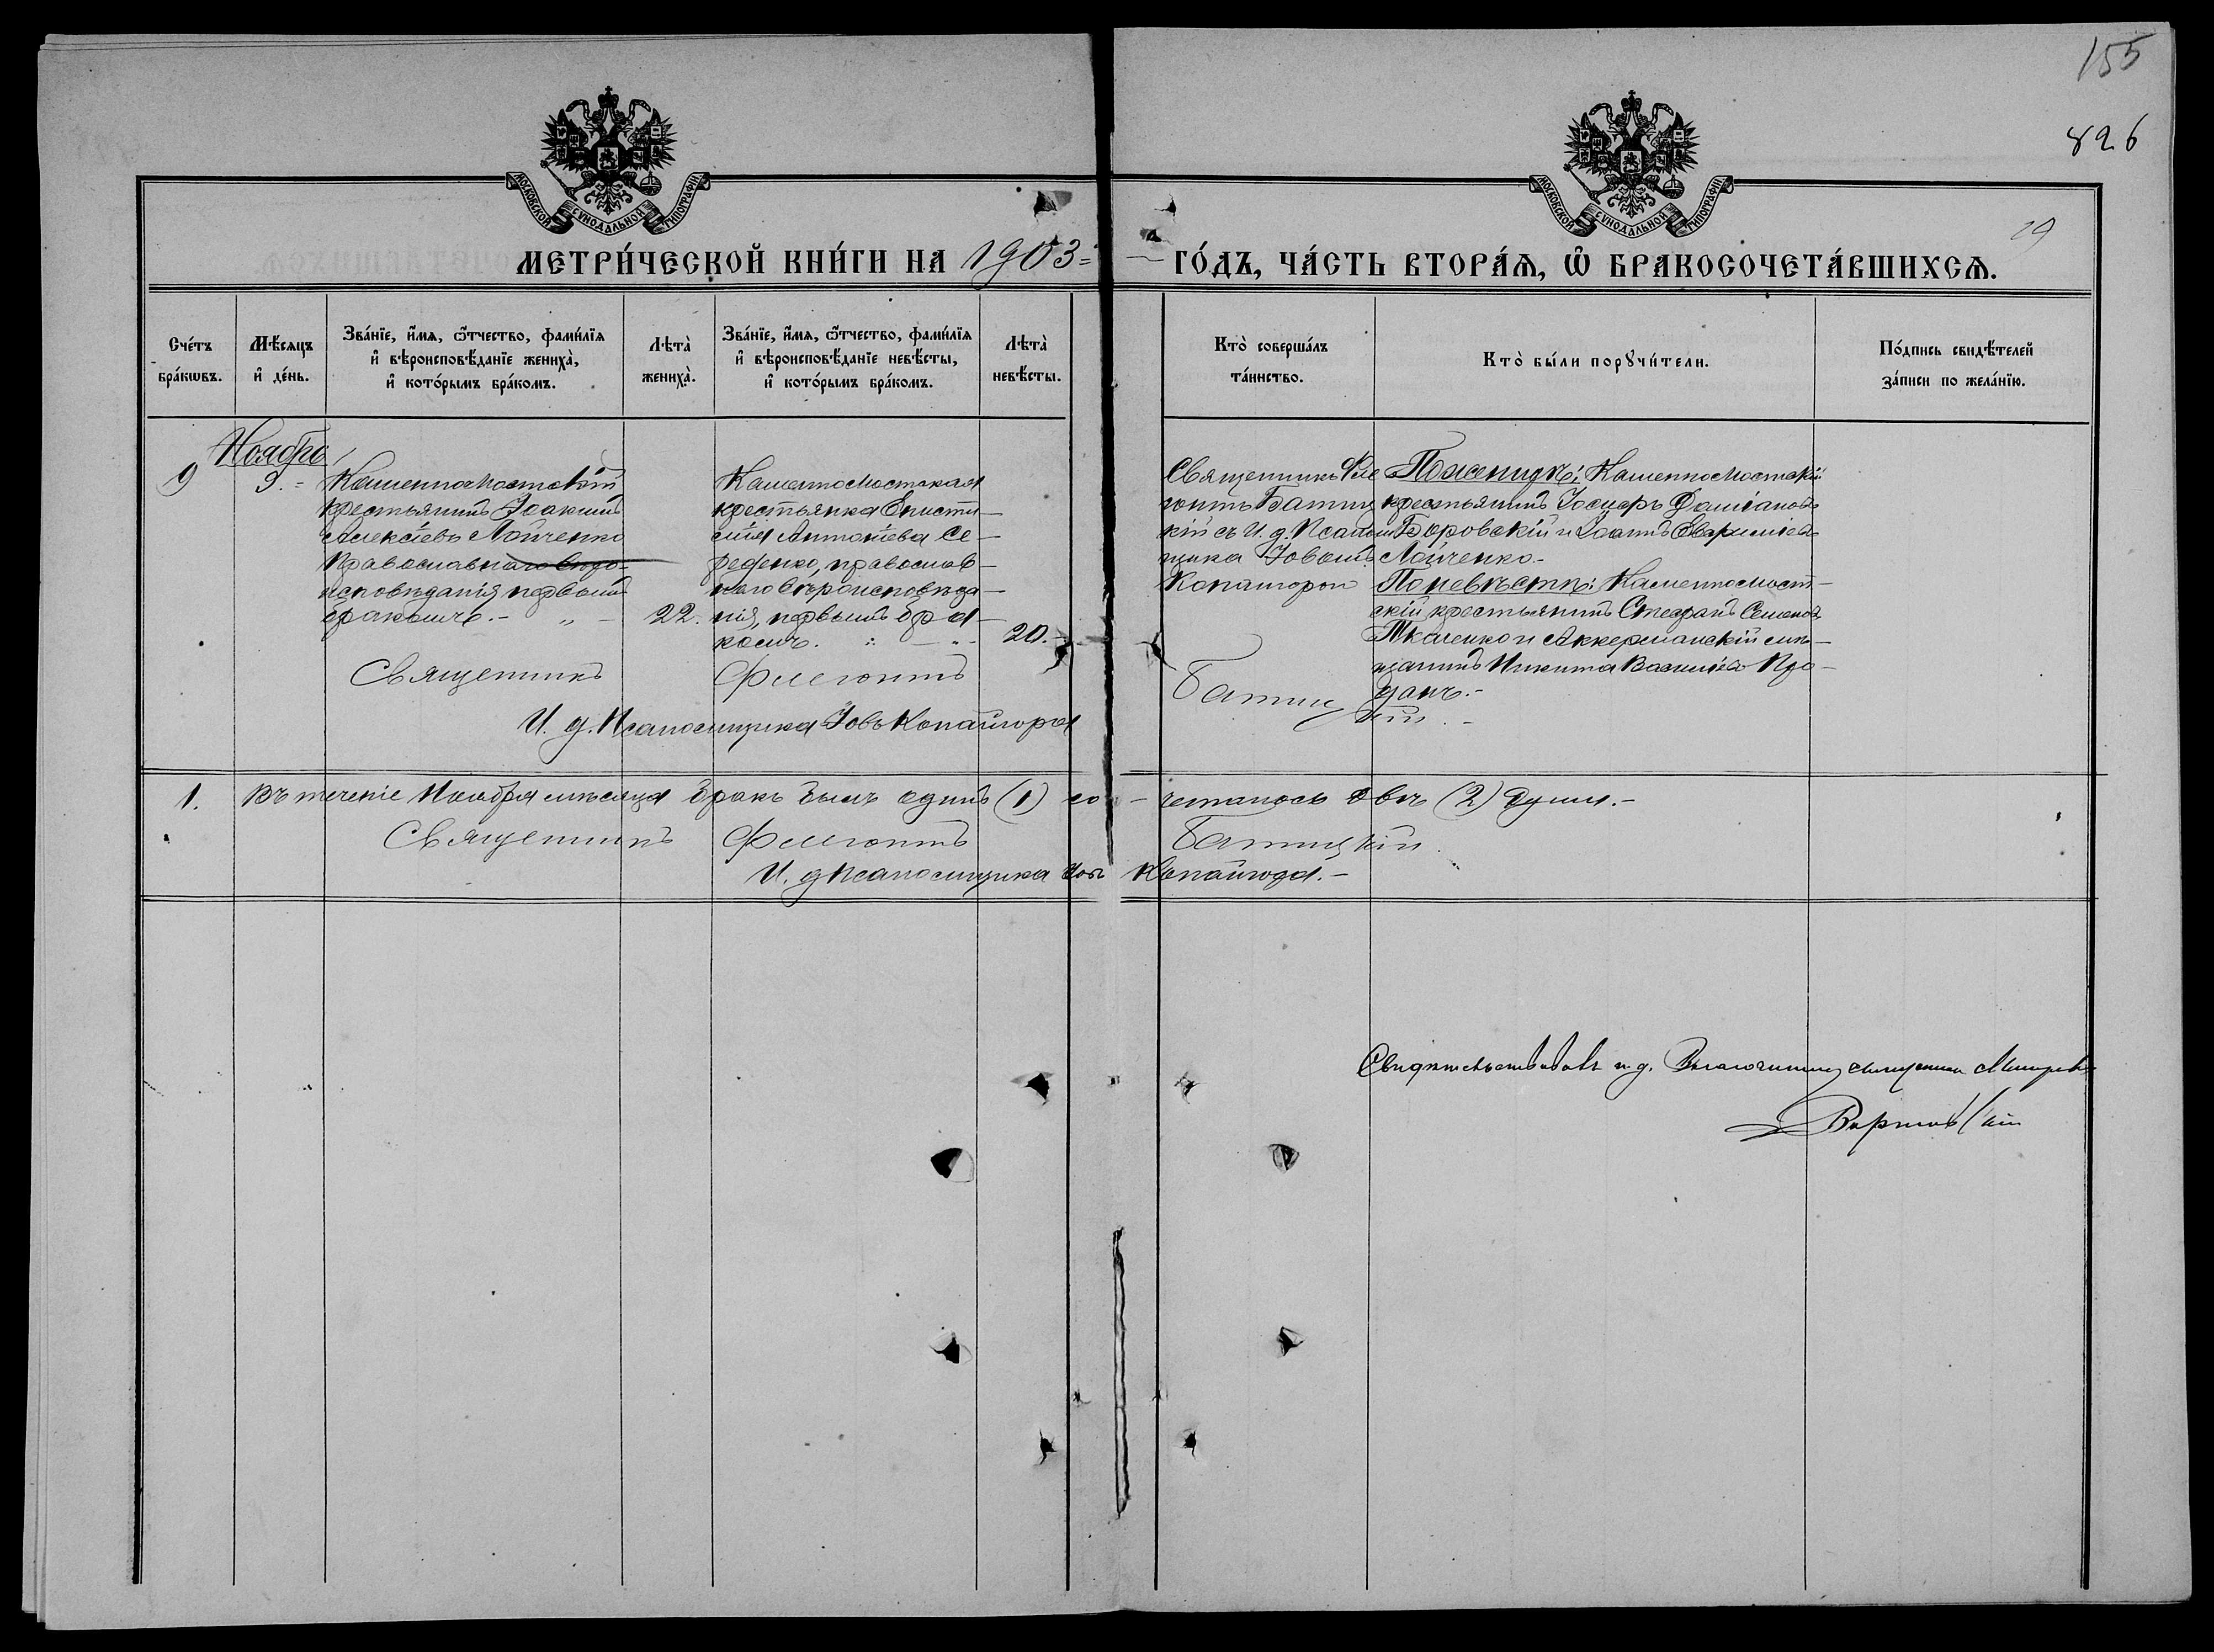 155
826
29
МОСКОВСКОЙ СѴНОДАЛЬНОЙ ТИПОГРАФІИ
МОСКОВСКОЙ СѴНОДАЛЬНОЙ ТИПОГРАФІИ
МЕТРИ́ЧЕСКОЙ КНИ́ГИ НА 1903 = ГО́ДЪ, ЧА́СТЬ ВТОРА́Ѧ, Ѡ҆ БРАКОСОЧЕТА́ВШИХСѦ.
Сче́тъ
бра́кѡвъ.
Мѣ́сѧцъ
и҆ де́нь.
Зва́нїе, и҆́мѧ, ѻ҆́тчество, фами́лїѧ
и҆ вѣроисповѣ́данїе жениха̀,
и҆ кото́рымъ бра́комъ.
Лѣта̀
жениха̀.
Зва́нїе, и҆́мѧ, ѻ҆́тчество, фами́лїѧ
и҆ вѣроисповѣ́данїе невѣ́сты,
и҆ кото́рымъ бра́комъ.
Лѣта̀
невѣ́сты.
Кто̀ соверша́лъ
та́инство.
Кто̀ бы́ли порꙋчи́тели.
По́дпись свидѣ́телей
за́писи по жела́нїю.
Ноябрь
9
9. =
Каменномостскій
крестьянинъ Іоакимъ
Алексѣевъ Лойченко
православнаго вѣро-
исповѣданія первымъ
бракомъ.-
22.
Каменномостская
крестьянка Еписти-
мія Антоніева Се-
реденко, православ-
наго вѣроисповѣда-
нія, первымъ бра-
комъ.
20.
Священникъ Фле
гонтъ Батиц
кій съ И. д. Псалом
щика Іовомъ
Копайгора
По женихѣ: Каменномостскій
крестьянинъ Іосифъ Даміановъ
Боровскій и Іоаннъ Евфиміевъ
Лойченко.-
По невѣстѣ: Каменномост-
скій крестьянинъ Стефанъ Семеновъ
Ткаченко и Аккерманскій мѣ-
щанинъ Никита Васильевъ Про-
данъ.-
Священникъ Флегонтъ Батицкій.-
И. д. Псаломщика Іовъ Копайгора
1. Въ теченіе Ноября мѣсяца бракъ былъ одинъ (1) со-четалось двѣ (2) души.-
Священникъ Флегонтъ Батицкій.
И. д Псаломщика Іовъ Копайгора.-
Свидѣтельствовалъ и. д. Благочиннаго священникъ